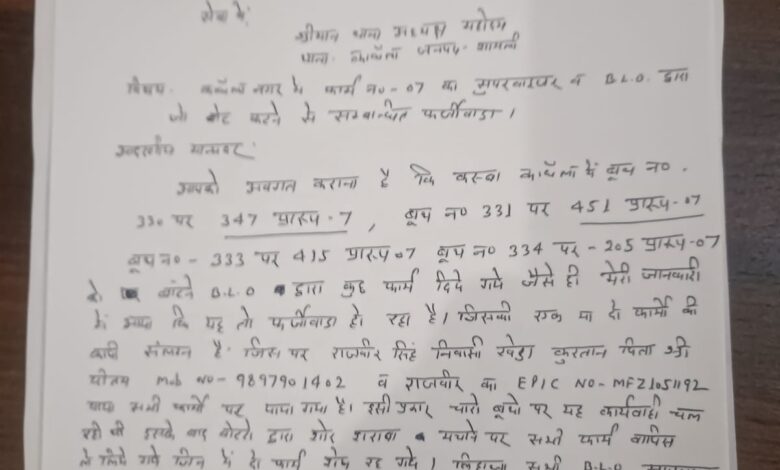 सेवा में,
श्रीमान थाना अध्यक्ष महोदय
थाना- काँधला जनपद- शामली
विषय- काँधला नगर के फार्म न०-07 का सुपरवाइजर व B.L.O. द्वारा
जो वोट काटने से सम्बन्धित फर्जीवाडा।
आदरणीय मान्यवर,
आपको अवगत कराना है कि कस्बा काँधला में बूथ न०.
330 पर 347 प्रारूप-7, बूथ न० 331 पर 451 प्रारूप-07
बूथ न०- 333 पर 415 प्रारूप-07 बूथ न० 334 पर - 205 प्रारूप-07
के बांटने B.L.O द्वारा कुछ फार्म दिये गये जैसे ही मेरी जानकारी
में आया कि यह तो फर्जीवाडा हो रहा है। जिसकी एक या दो फार्मो की
कापी संलग्न है. जिस पर राजवीर सिंह निवासी खेडा कुरतान पिता श्री
Mob No- 9897901402 व राजवीर का EPIC NO- MFZ1051192
पाया सभी फार्मो पर पाया गया है। इसी प्रकार चारो बूथो पर यह कार्यवाही चल
रही थी इसके बाद वोटरो द्वारा शोर शराबा मचाने पर सभी फार्म वापिस
ले लिये गये जिन में दो फार्म शेष रह गये। लिहाजा सभी B.L.O